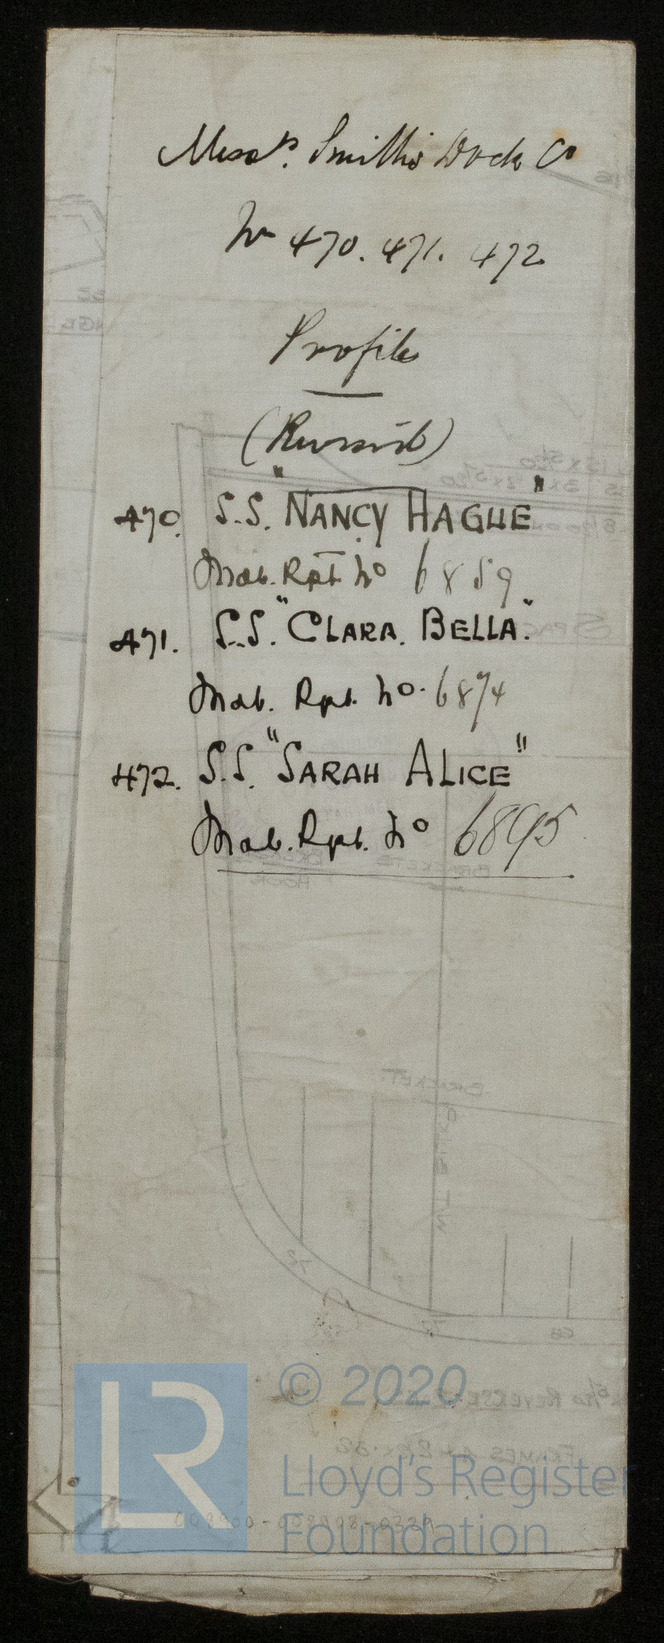 Messrs. Smith's Dock Co
No 470. 471. 472
Profile
(Revised)
470. S.S. "NANCY HAGUE"
Mab. Rpt. No 6859
471. S.S. "CLARA BELLA."
Mab. Rpt. No. 6874
472. S.S. "SARAH ALICE"
Mab. Rpt. No 6895
LR
© 2020
Lloyd's Register
Foundation